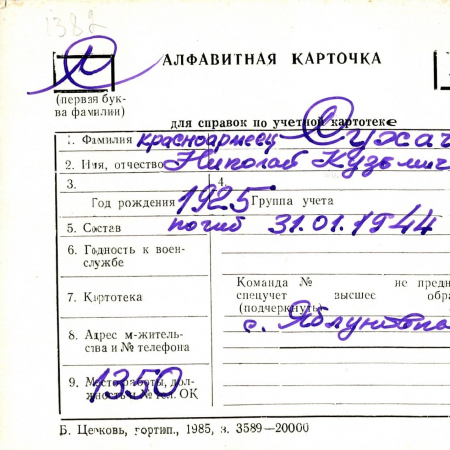 1382
С
АЛФАВИТНАЯ КАРТОЧКА
(первая бук-
ва фамилии)
для справок по учетной картотеке
1. Фамилия красноармеец Сухач
2. Имя, отчество Николай Кузьмич
3.
4.
Год рождения 1925 Группа учета
5. Состав погиб 31.01.1944
6. Годность к воен-
службе
Команда № не предн
7. Картотека
спецучет высшее обра
(подчеркнуть)
8. Адрес м-житель-
ства и № телефона
с.
9. Место работы, дол-
жность и № тел. ОК
1350
Б. Церковь, гортип., 1985, з. 3589—20000